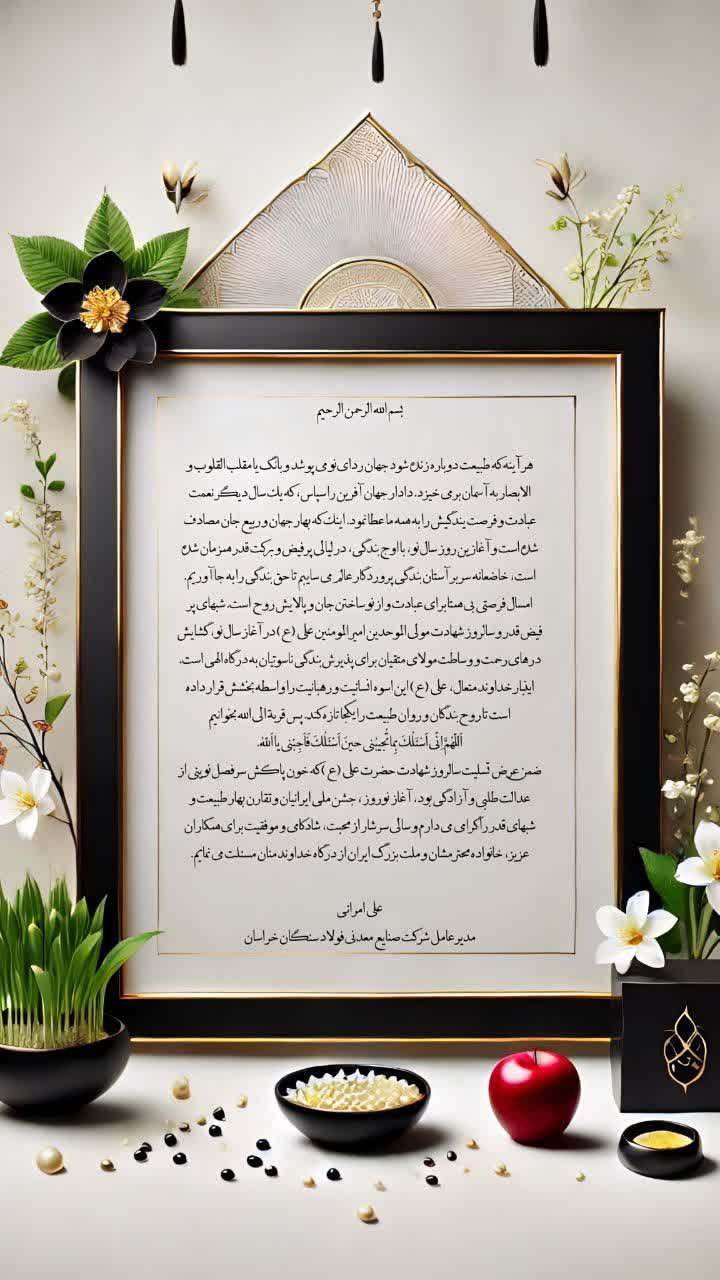 بسم الله الرحمن الرحیم
هر آینه که طبیعت دوباره زنده شود جهان ردای نو می پوشد و بانگ یا مقلب القلوب و
الابصار به آسمان برمی خیزد. دادار جهان آفرین را سپاس، که یک سال دیگر نعمت
عبادت و فرصت بندگیش را به همه ما عطا نمود. اینک که بهار جهان و ربیع جان مصادف
شده است و آغازین روز سال نو، با اوج بندگی، در لیالی پر فیض و برکت قدر همزمان شده
است، خاضعانه سر بر آستان بندگی پروردگار عالم می ساییم تا حق بندگی را به جا آوریم.
امسال فرصتی بی همتا برای عبادت و از نو ساختن جان و پالایش روح است. شبهای پر
فیض قدر و سالروز شهادت مولی الموحدین امیر المومنین علی (ع) در آغاز سال نو، گشایش
درهای رحمت و وساطت مولای متقیان برای پذیرش بندگی ناسوتیان به درگاه الهی است.
اینبار خداوند متعال، علی (ع) این اسوه انسانیت و رهبانیت را واسطه بخشش قرار داده
است تا روح بندگان و روان طبیعت را یکجا تازه کند. پس قربة الی الله بخوانیم
اَللّهُمَّ اِنّی اَسْئَلُكَ بِما تُجیبُنی حینَ اَسْئَلُكَ فَاَجِبْنی یا اَللهُ.
ضمن عرض تسلیت سالروز شهادت حضرت علی (ع) که خون پاکش سرفصل نوینی از
عدالت طلبی و آزادگی بود، آغاز نوروز، جشن ملی ایرانیان و تقارن بهار طبیعت و
شبهای قدر را گرامی می دارم و سالی سرشار از محبت، شادکامی و موفقیت برای همکاران
عزیز، خانواده محترمشان و ملت بزرگ ایران از درگاه خداوند منان مسئلت می نمایم.
علی امرانی
مدیر عامل شرکت صنایع معدنی فولاد سنگان خراسان